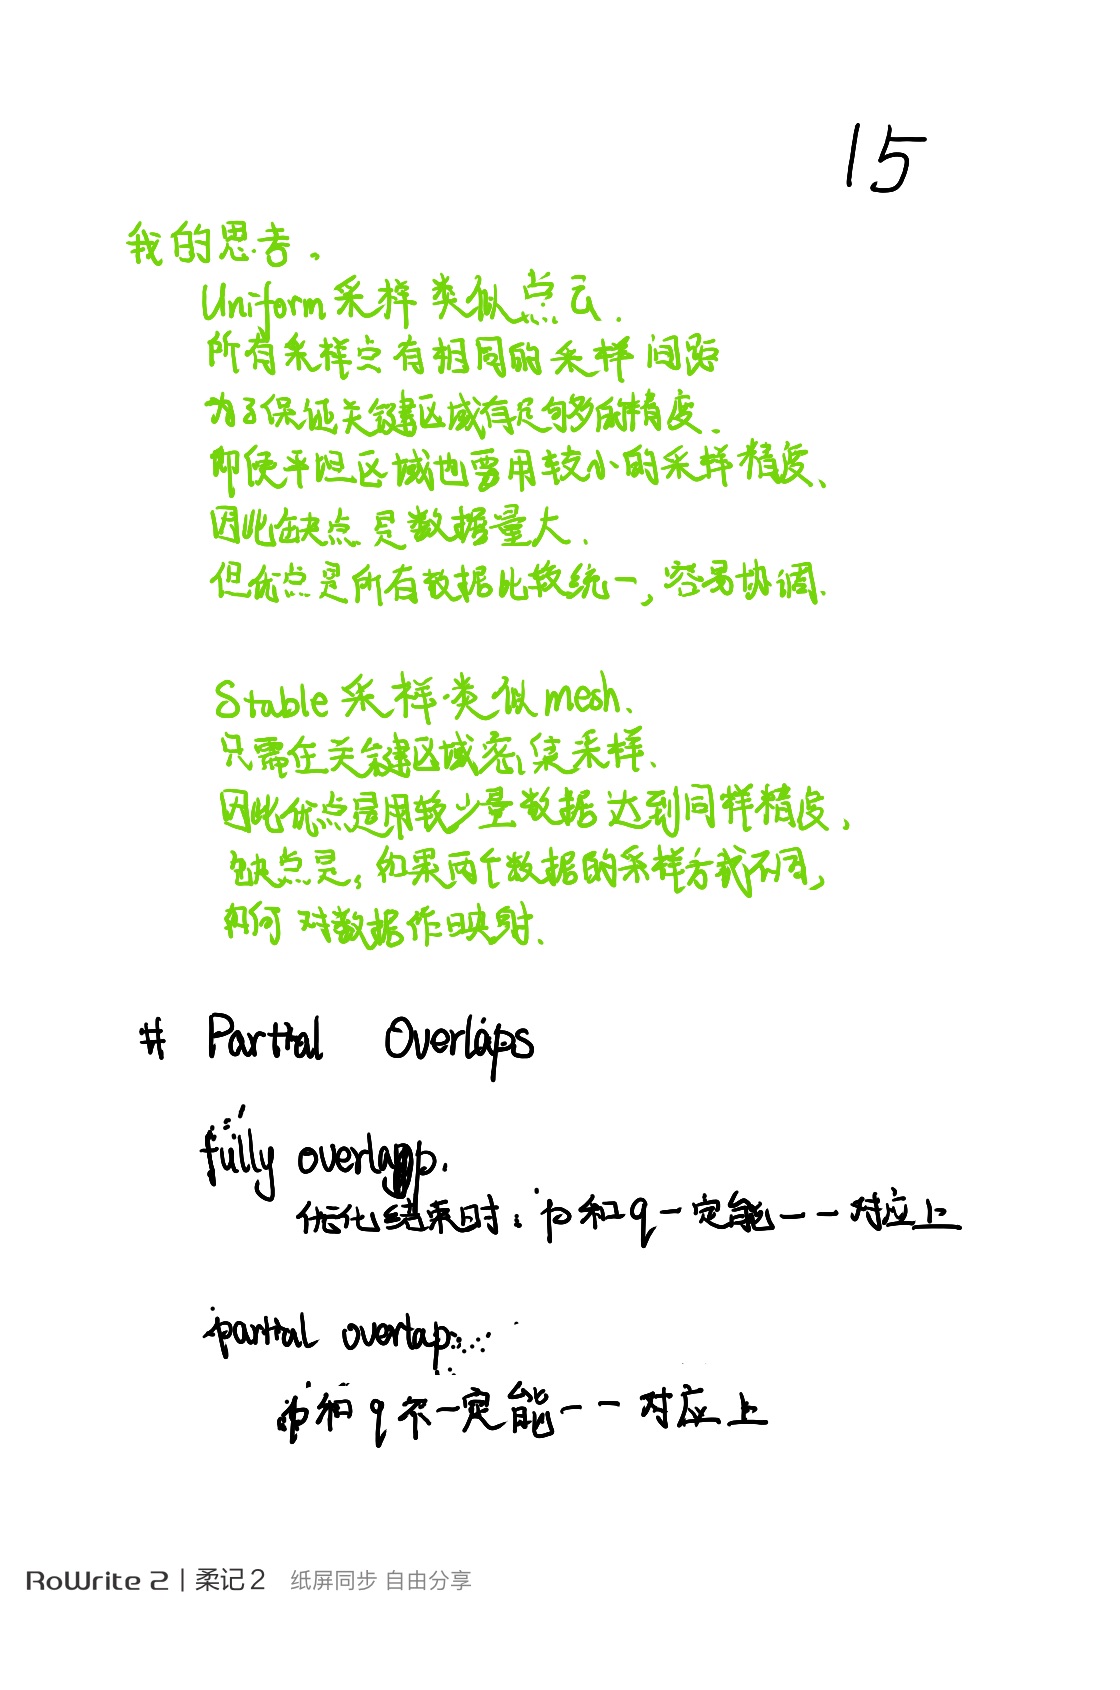 15
我的思考.
Uniform 采样 类似点云.
所有采样点有相同的采样间距
为了保证关键区域有足够的精度.
即使平坦区域也要用较小的采样精度、
因此缺点是数据量大.
但优点是所有数据比较统一, 容易协调.
Stable 采样类似mesh、
只需在关键区域密集采样、
因此优点是用较少量数据达到同样精度,
缺点是, 如果两个数据的采样方式不同,
如何对数据作映射.
# Partial Overlaps
fully overlapp.
优化结束时: p和q一定能一一对应上
partial overlap:
p和q不一定能一一对应上
RoWrite 2 | 柔记2 纸屏同步 自由分享